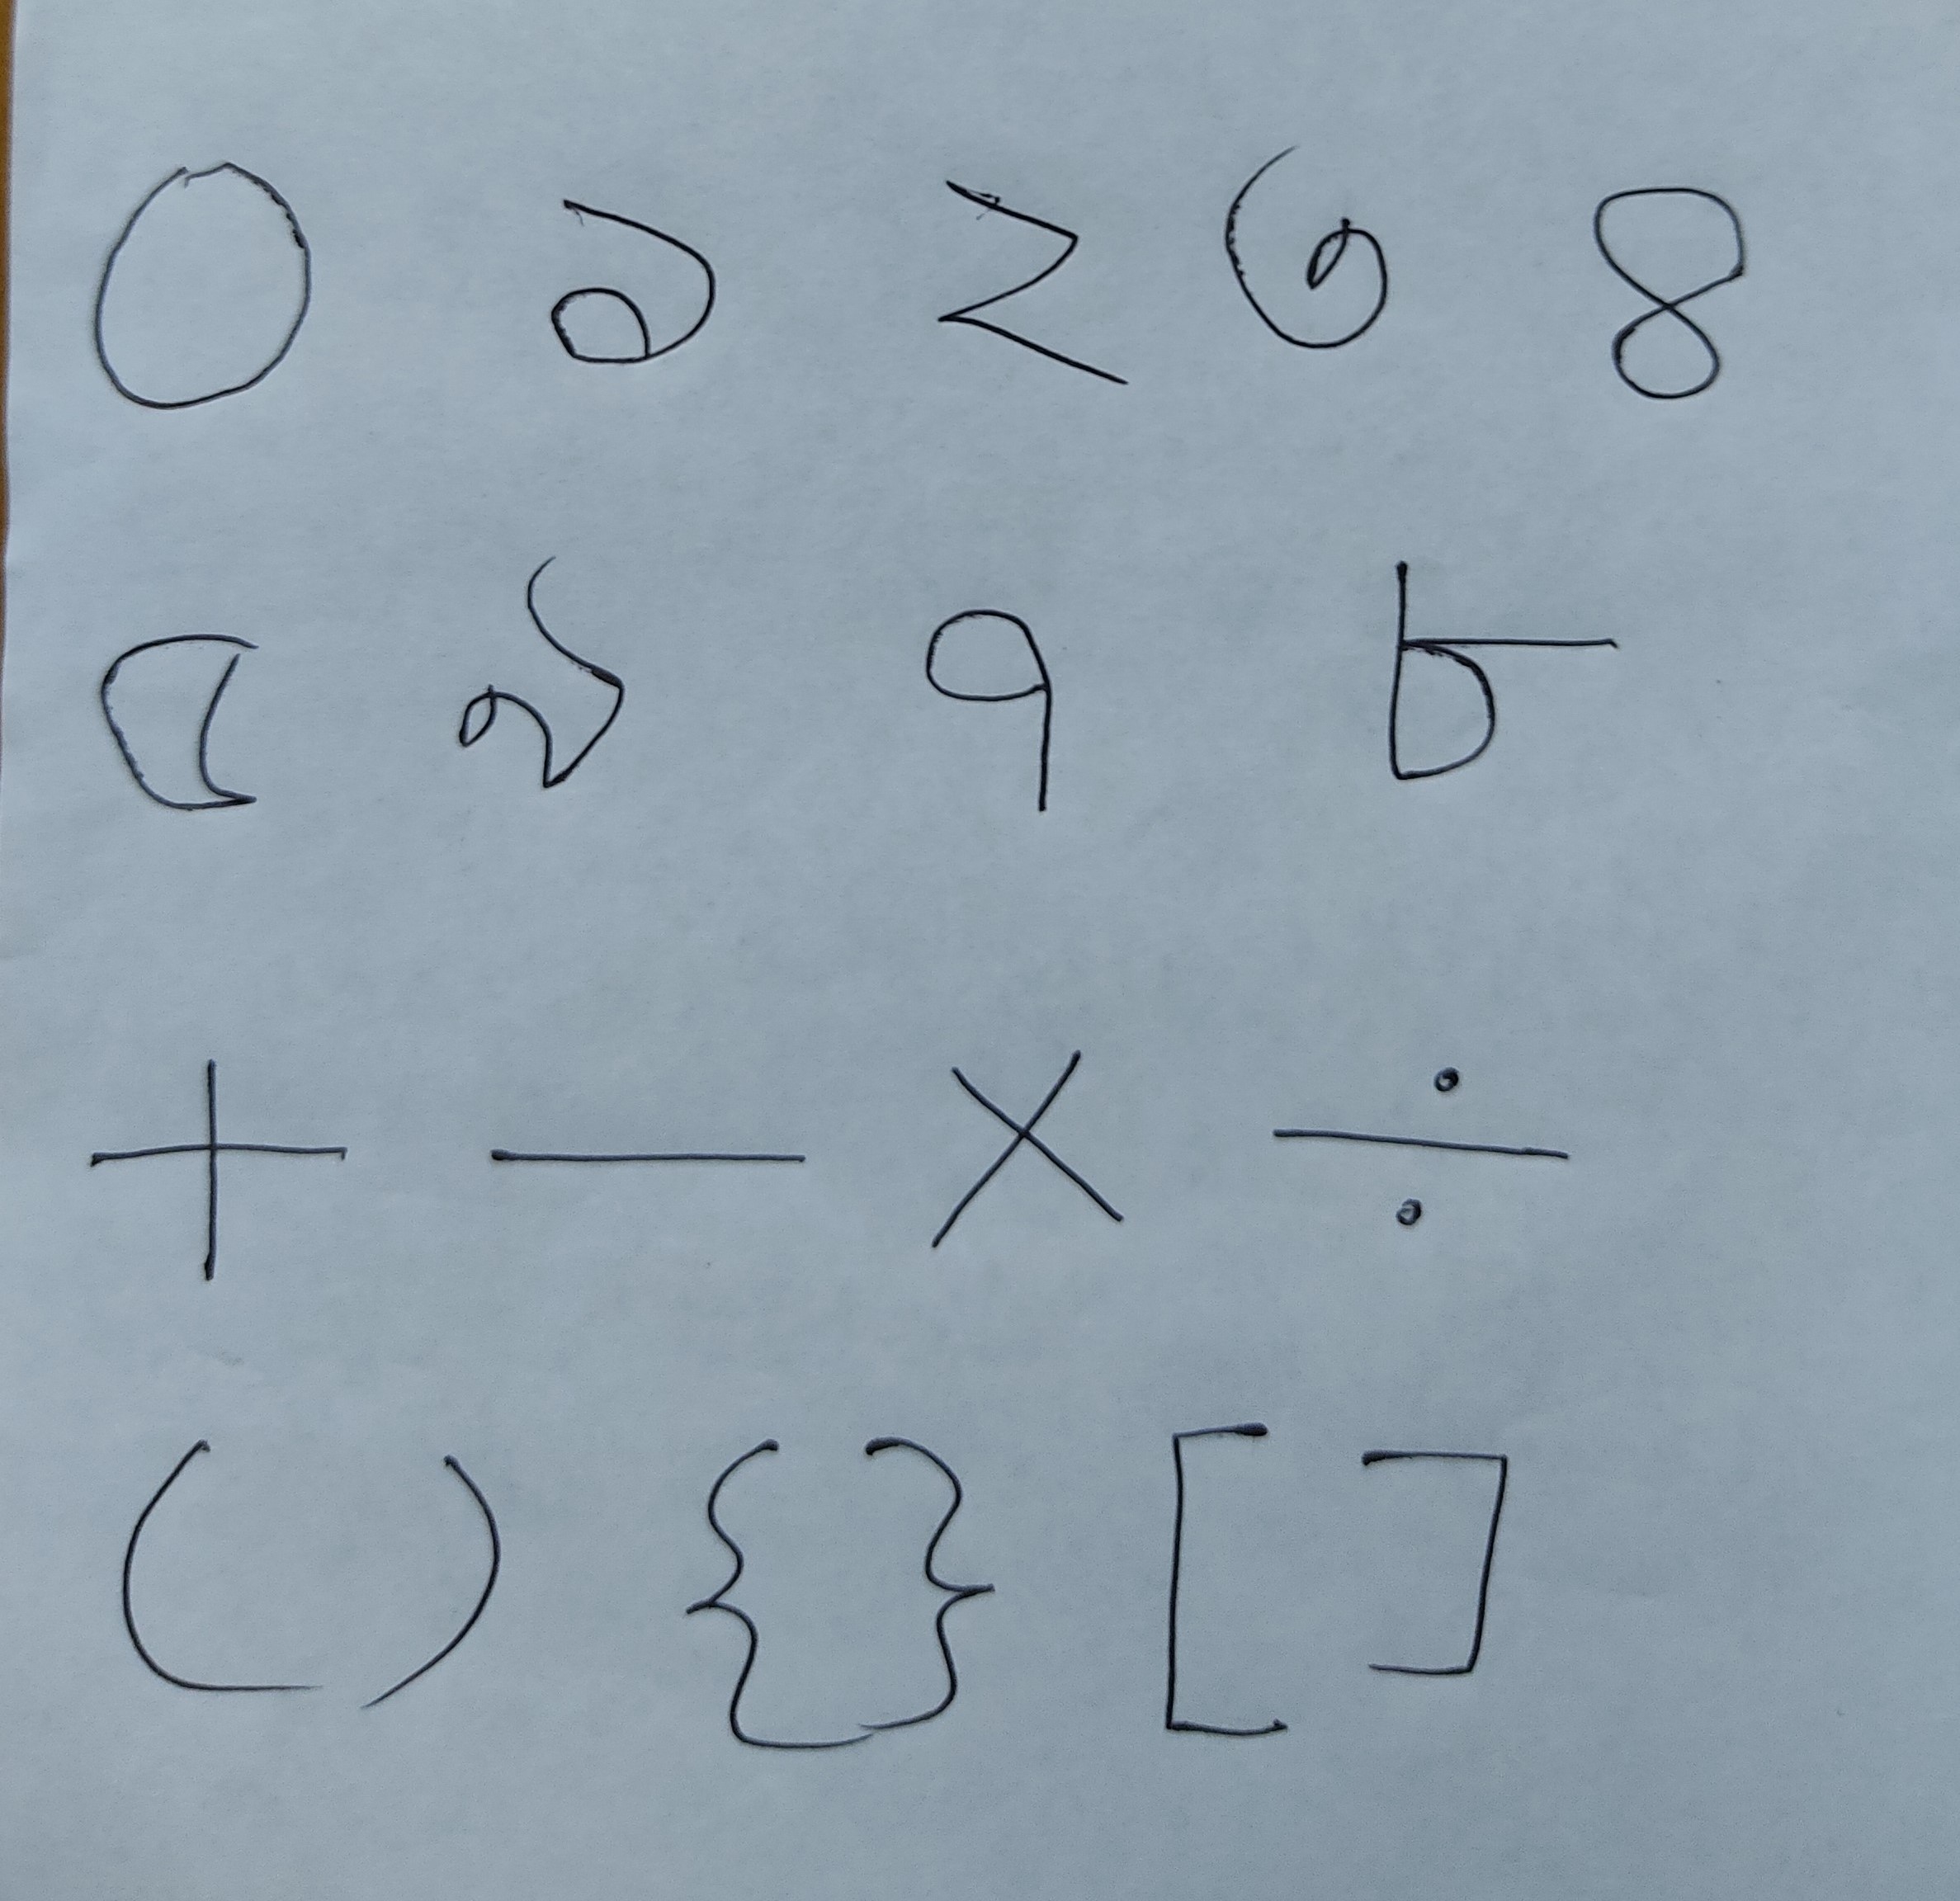 ০ ১ ২ ৩ ৪
৫ ৬ ৭ ৮
+ − × ÷
( ) { } [ ]